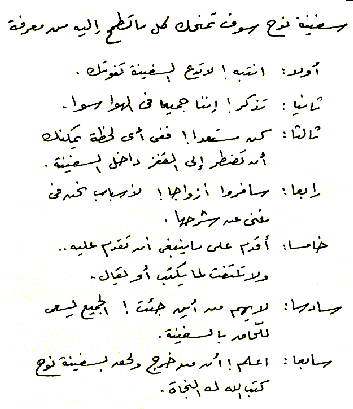 سفينة نوح سوف تمنحك كل ما تطمح إليه من معرفة
أولا: انتبه! لا تدع السفينة تفوتك.
ثانيا: تذكر! إننا جميعا في الهوا سوا.
ثالثا: كن مستعدا! ففى أى لحظة يمكنك
أن تضطر إلى القفز داخل السفينة.
رابعا: سافروا أزواجا! لأسباب نحن في
غنى عن شرحها.
خامسا: أقدم على ما ينبغى أن تقدم عليه..
ولا تلتفت لما يكتب أو يقال.
سادسا: لا يهم من أين جئت! الجميع يسعى
للحاق بالسفينة.
سابعا: اعلم! أن من خرج ولحق بسفينة نوح
كتب الله له النجاة.